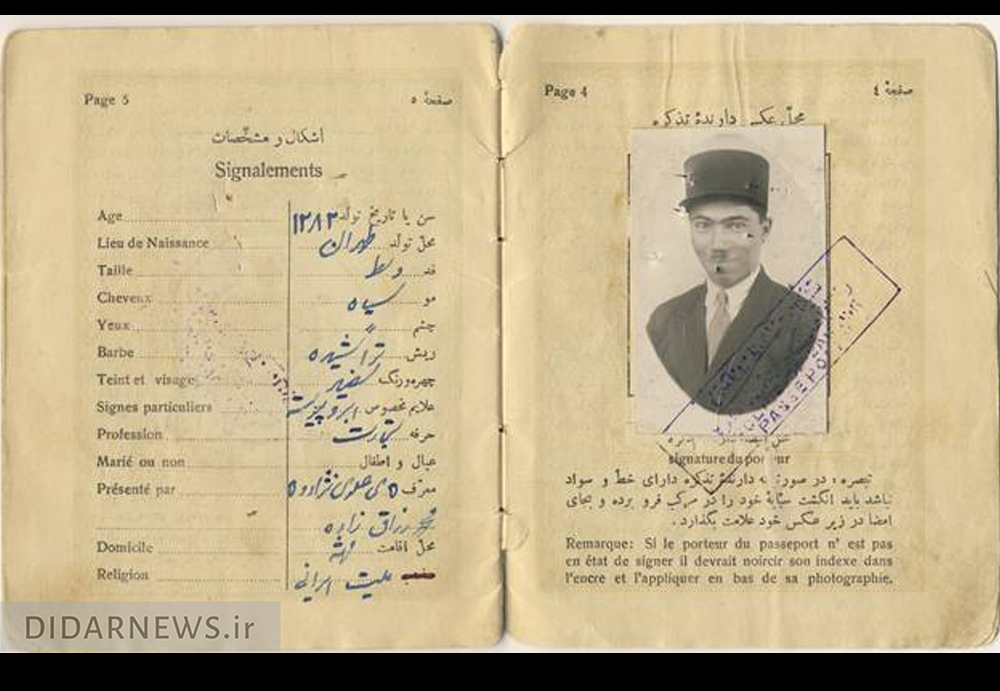 Page 4
صفحهٔ ٤
محلّ عکس دارندهٔ تذکره
PASSEPO
signature du por ur
تبصره: در صورت که دارندهٔ تذکره دارای خطّ و سواد
نباشد باید انگشت سبّابهٔ خود را در مرکب فرو برده و بجای
امضا در زیر عکس خود علامت بگذارد.
Remarque: Si le porteur du passeport n' est pas
en état de signer il devrait noircir son indexe dans
l'encre et l'appliquer en bas de sa photographie.
Page 5
صفحهٔ ٥
اشکال و مشخّصات
Signalements
Age سن یا تاریخ تولد ١٢٨٢
Lieu de Naissance محلّ تولد طهران
Taille قد وسط
Cheveux مو سیاه
Yeux چشم
Barbe ریش تراشیده
Teint et visage چهره و رنگ
Signes particuliers علایم مخصوص ابرو پیوسته
Profession حرفه تجارت
Marié ou non عیال و اطفال
Présenté par معرّف
رزاق زاده
Domicile محلّ اقامت
Religion ملیت ایرانی
DIDARNEWS.ir